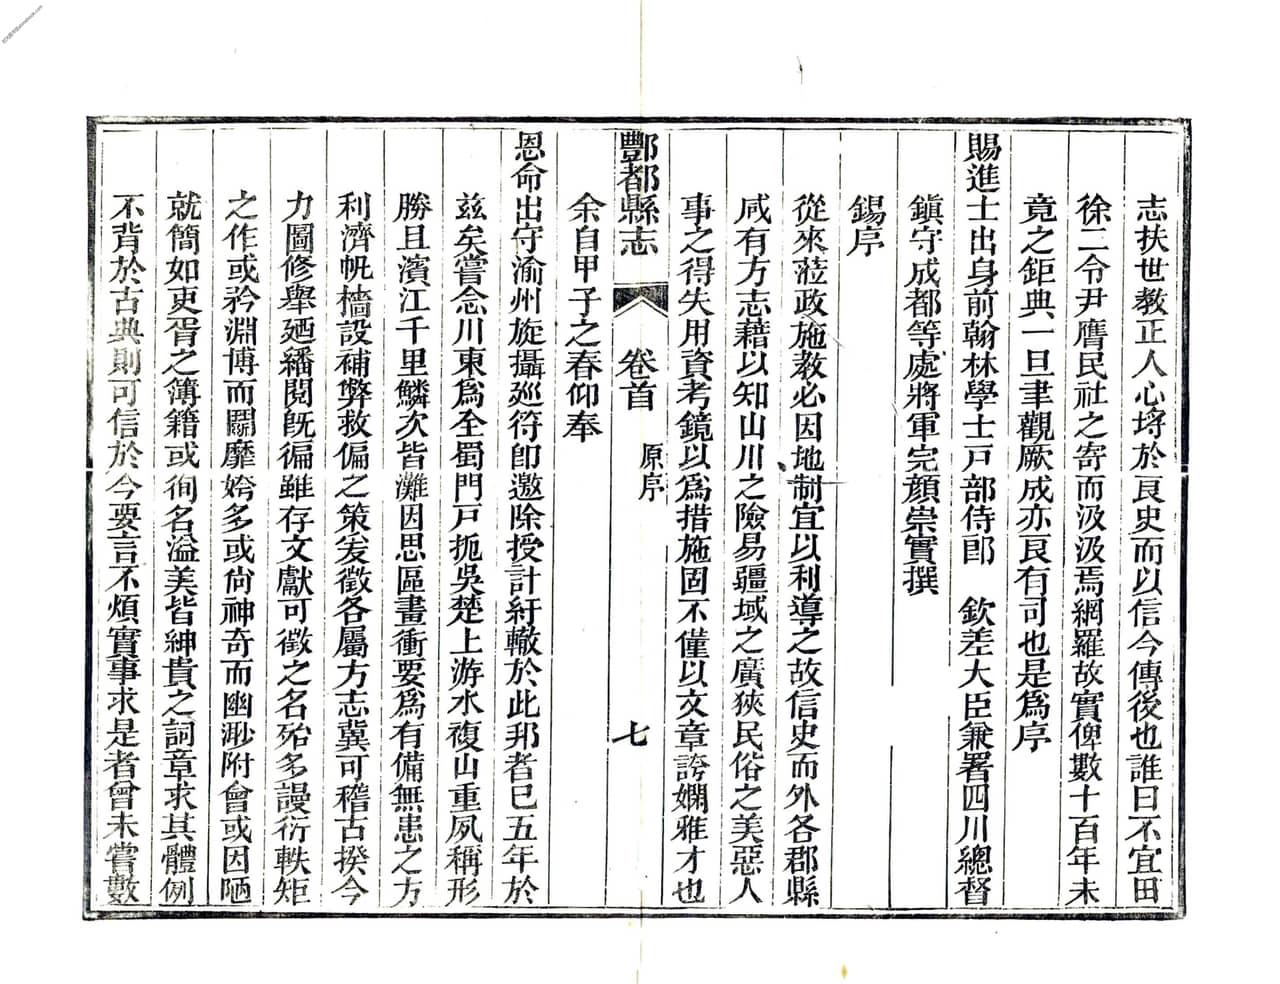 志扶世教正人心將於良史而以信今傳後也誰曰不宜田
徐二令尹膺民社之寄而汲汲焉網羅故實俾數十百年未
竟之鉅典一旦聿觀厥成亦良有司也是爲序
賜進士出身前翰林學士戸部侍郎　欽差大臣兼署四川總督
鎮守成都等處將軍完顏崇實撰
錫序
從來蒞政施教必因地制宜以利導之故信史而外各郡縣
咸有方志藉以知山川之險易疆域之廣狹民俗之美惡人
事之得失用資考鏡以爲措施固不僅以文章誇嫻雅才也
酆都縣志　卷首　原序　七
余自甲子之春仰奉
恩命出守渝州旋攝巡符卽邀除授計紆轍於此邦者已五年於
兹矣嘗念川東爲全蜀門戸扼吳楚上游水複山重夙稱形
勝且濱江千里鱗次皆灘因思區畫衝要爲有備無患之方
利濟帆檣設補弊救偏之策爰徵各屬方志冀可稽古揆今
力圖修舉廼繙閱旣徧雖存文獻可徵之名殆多謾衍軼矩
之作或矜淵博而鬭靡夸多或尙神奇而幽渺附會或因陋
就簡如吏胥之簿籍或徇名溢美皆紳貴之詞章求其體例
不背於古典則可信於今要言不煩實事求是者曾未嘗數